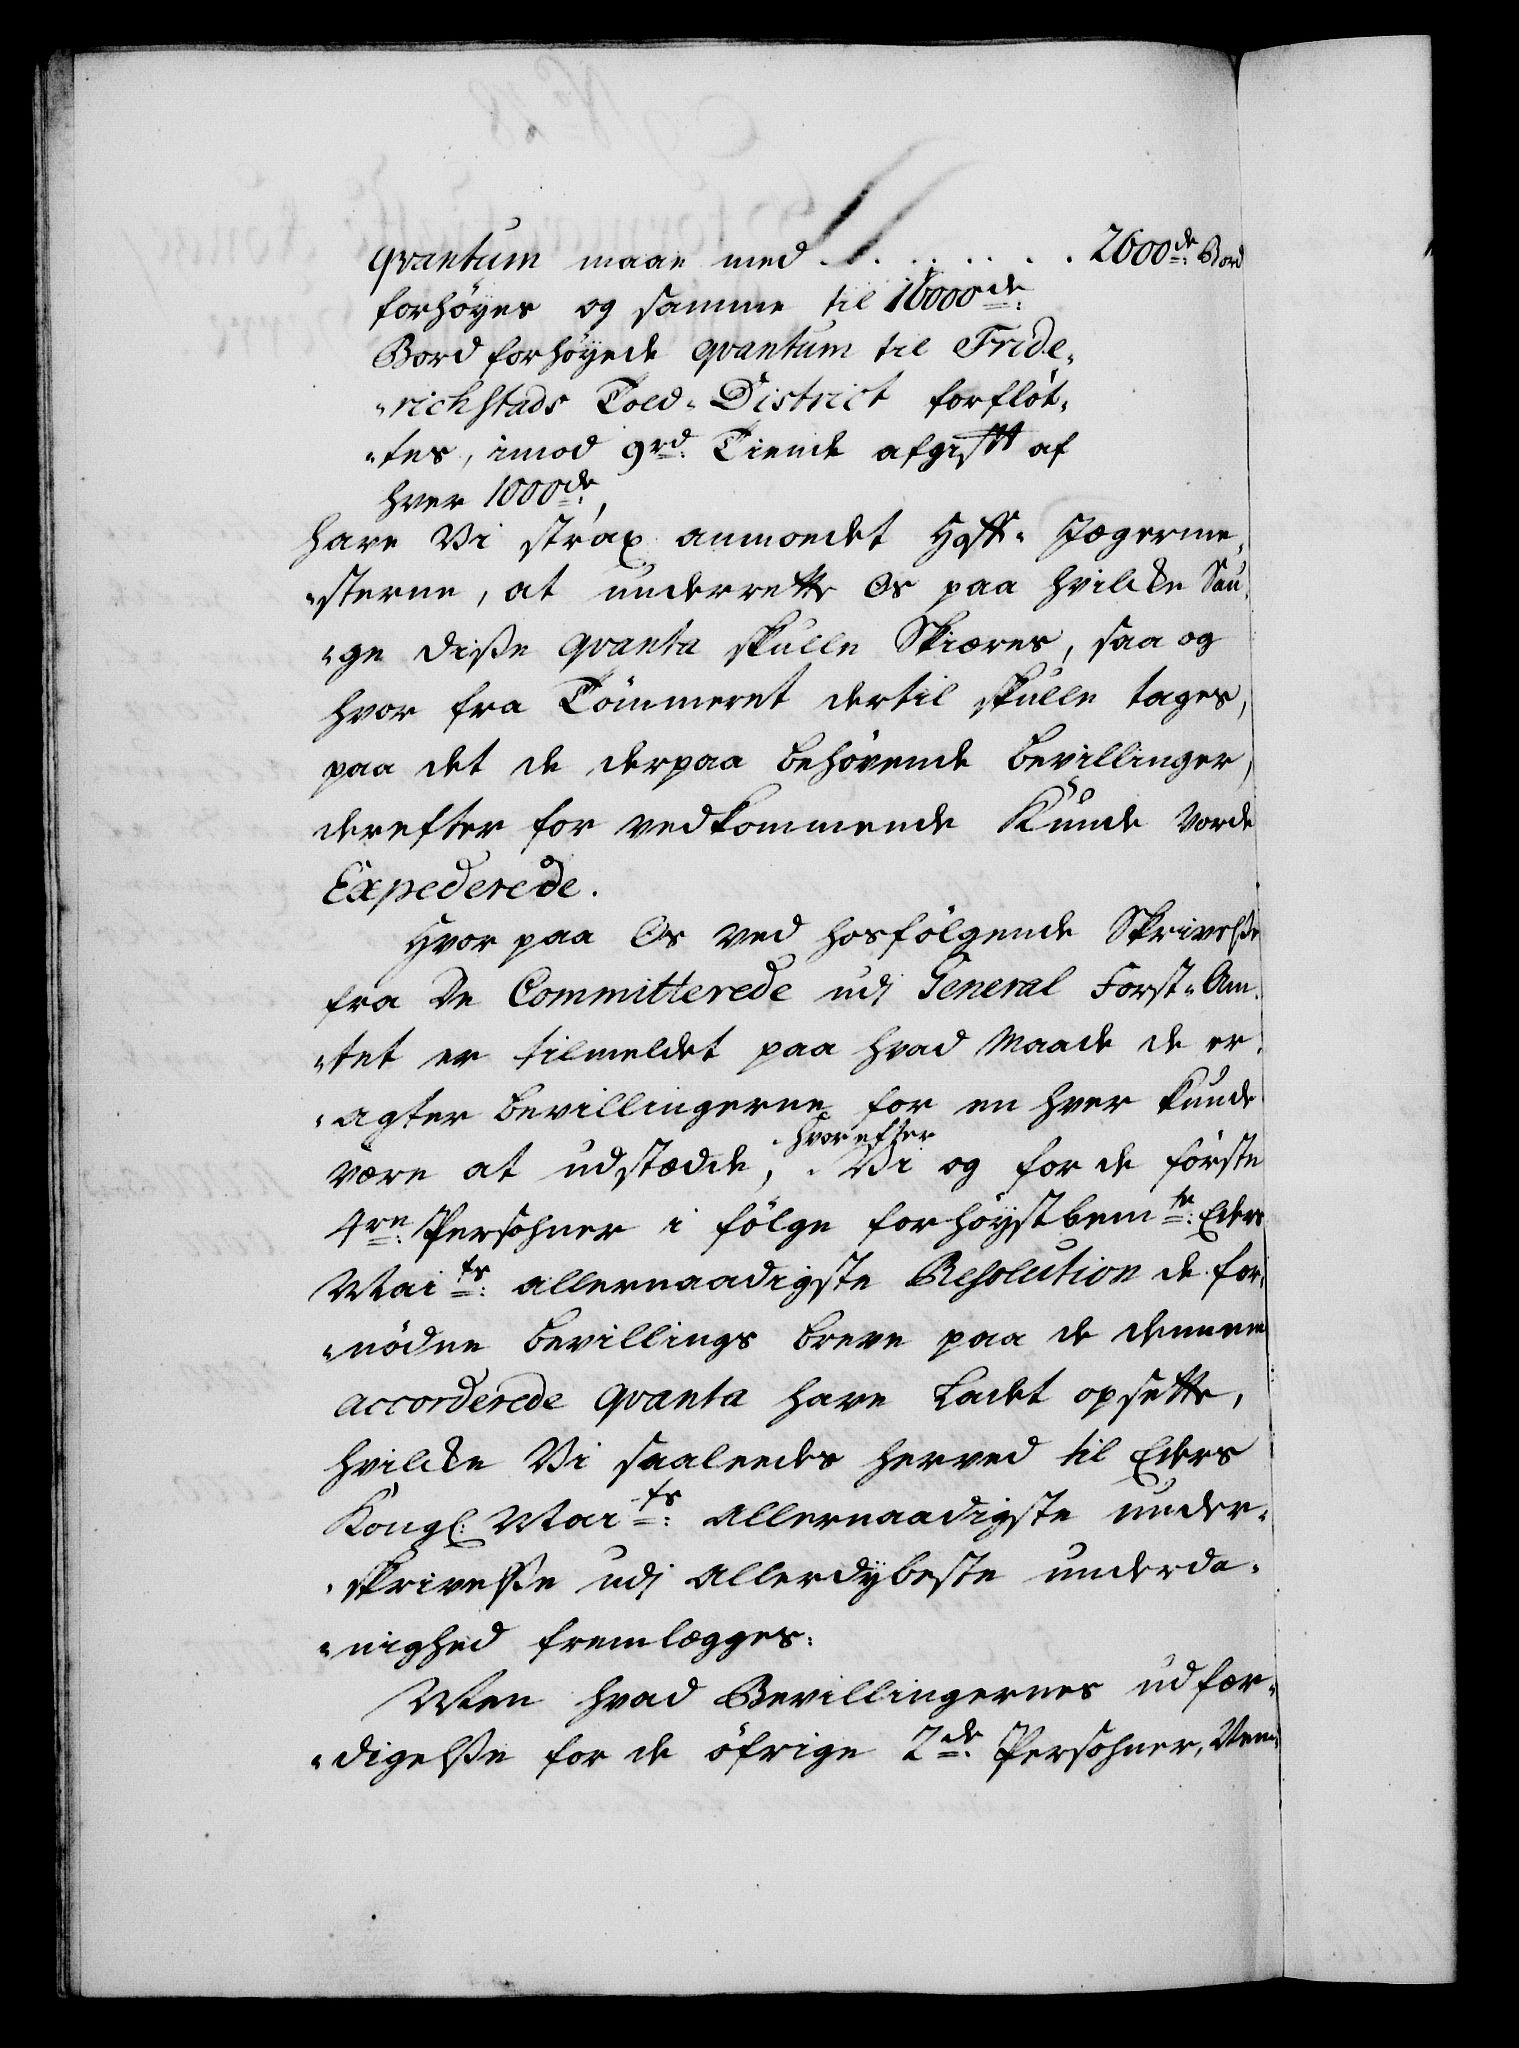 qvantum maae med . . . . . . . 2600de Bord
forhöyes og samme til 16000de:
Bord forhöyede qvantum til Fride„
„richstads Told-District forflöt„
„tes, imod 9rd: Tiende afgifft af
hver 1000de,
have Vi strax anmodet Hoff- Jægerme„
„sterne, at underrette Os paa hvilcke Sau„
„ge diße qvanta skulle Skiæres, saa og
hvor fra Tömmeret dertil skulle tages,
paa det de derpaa behövende bevillinger,
derefter for vedkommende Kunde vorde
Expederede.
Hvor paa Os ved hosfölgende Skrivelße
fra de Committerede udj General Forst-Am„
„tet er tilmeldet paa hvad Maade de er„
„agter bevillingerne for en hver kunde
være at udstæde, hvorefter Vi og for de förste
4re: Persohner i fölge forhöystbemte: Eders
Maits: allernaadigste Resolution de for„
„nödne bevillings breve paa de dennem
accorderede qvanta have Ladet opsette,
hvilcke Vi saaleedes herved til Eders
Kongl: Maits: allernaadigste under„
„skrivelße udj allerdybeste underda„
„nighed fremlegges:
Men hvad Bevillingernes udfær„
„digelße for de öfrige 2de: Persohner, Nem„